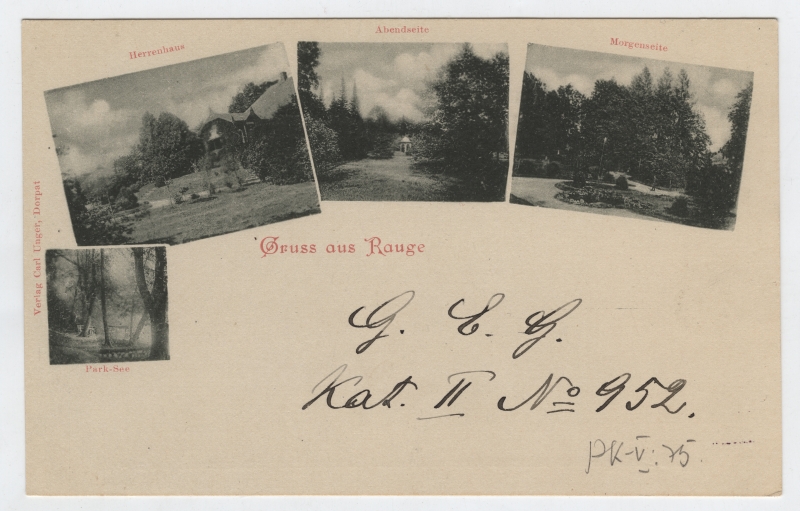 Herrenhaus
Abendseite
Morgenseite
Verlag Carl Unger, Dorpat
Gruss aus Rauge
Park-See
G. E. G.
Kat. II No 952.
PK-V:75